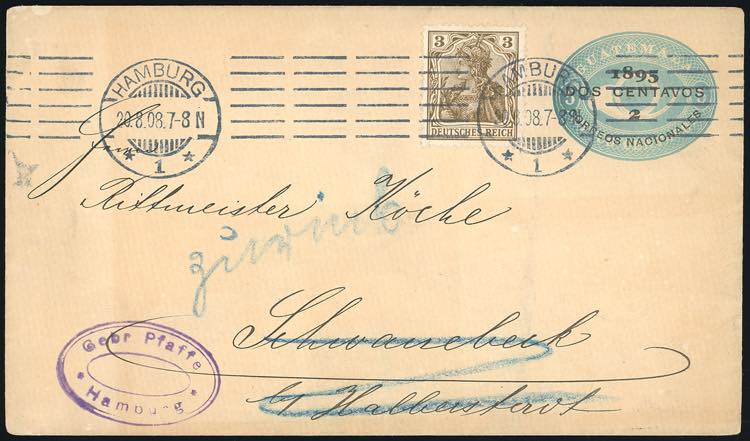 HAMBURG
20.8.08.7-8N
* 1 *
3 3
DEUTSCHES REICH
HAMBURG
.8.08.7-8
* 1 *
GUATEMALA
1895
DOS CENTAVOS
2
CORREOS NACIONALES
Rittmeister Köche
zurück
Schwanebeck
b/ Halberstadt
Gebr Pfaffe
* Hamburg *